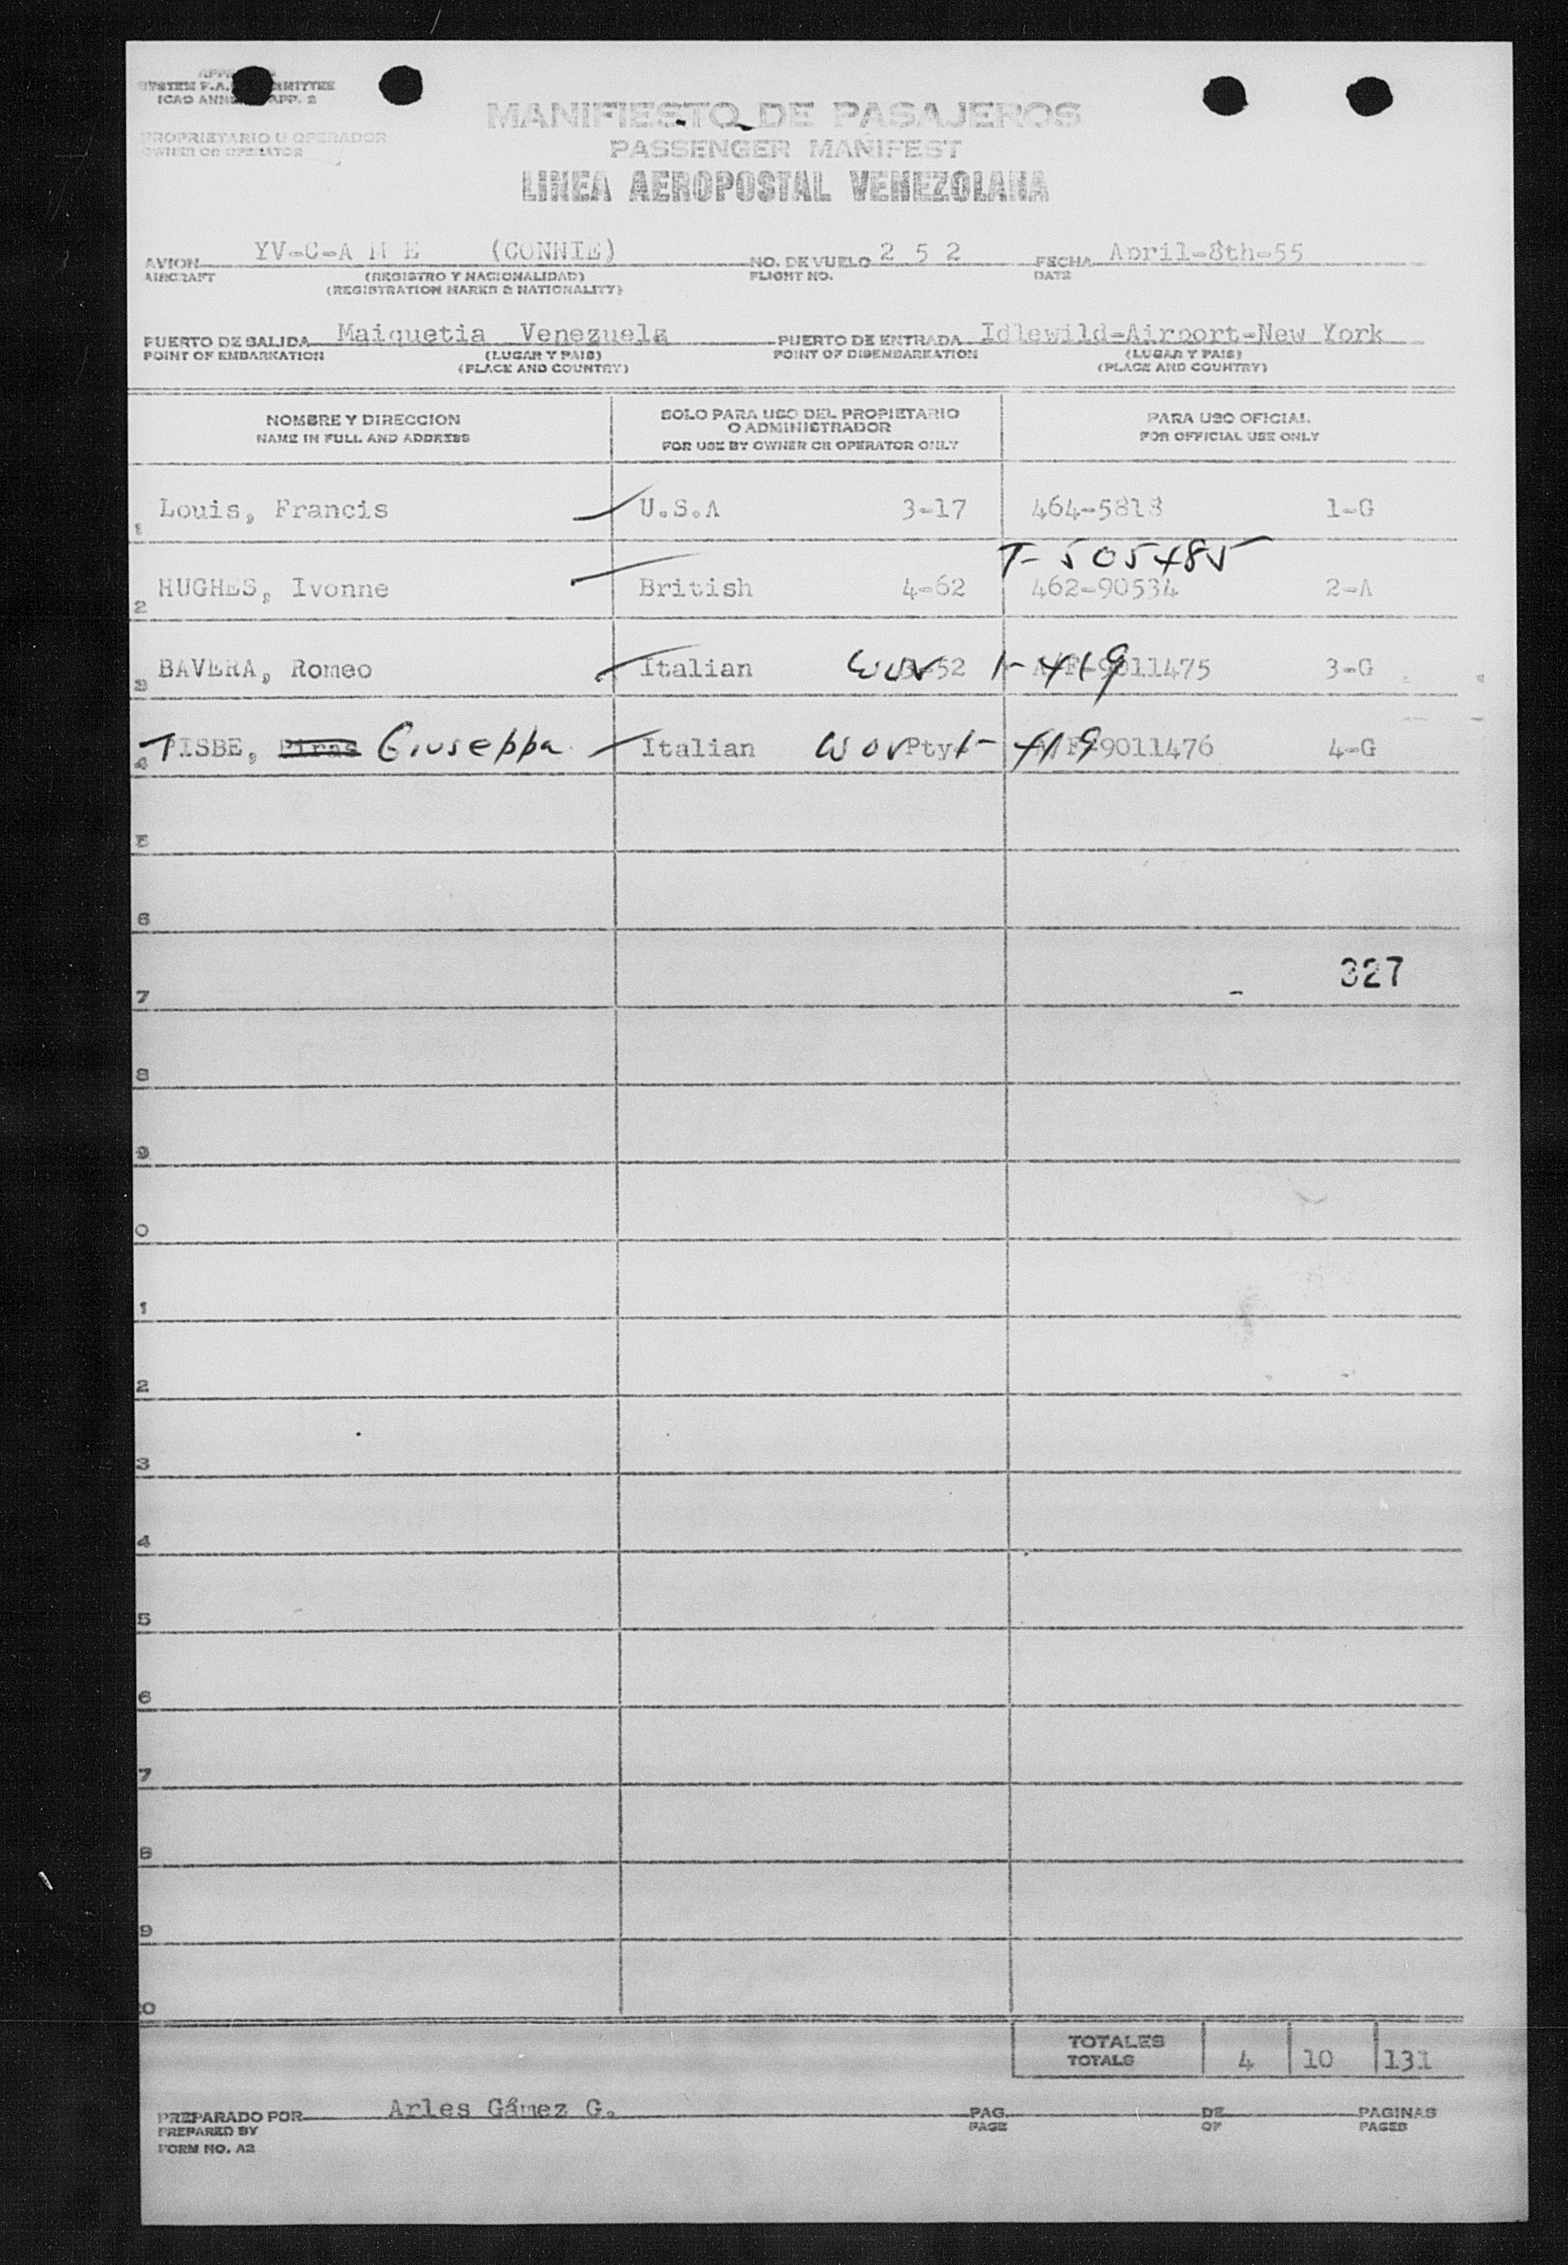 SYSTEM F.A.
ICAO APP. 2
PROPRIETARIO U OPERADOR
OWNER OR OPERATOR
MANIFIESTO DE PASAJEROS
PASSENGER MANIFEST
LINEA AEROPOSTAL VENEZOLANA
AVION YV-C-A M E (CONNIE) NO. DE VUELO 2 5 2 FECHA April-8th-55
AIRCRAFT (REGISTRO Y NACIONALIDAD) FLIGHT NO. DATE
(REGISTRATION MARKS & NATIONALITY)
PUERTO DE SALIDA Maiquetia Venezuela PUERTO DE ENTRADA Idlewild-Airport-New York
POINT OF EMBARKATION (LUGAR Y PAIS) POINT OF DISEMBARKATION (LUGAR Y PAIS)
(PLACE AND COUNTRY) (PLACE AND COUNTRY)
NOMBRE Y DIRECCION SOLO PARA USO DEL PROPIETARIO PARA USO OFICIAL
O ADMINISTRADOR
NAME IN FULL AND ADDRESS FOR USE BY OWNER OR OPERATOR ONLY FOR OFFICIAL USE ONLY
1 Louis, Francis U.S.A 3-17 464-5818 1-G
T-505485
2 HUGHES, Ivonne British 4-62 462-90534 2-A
3 BAVERA, Romeo Italian 52 1-419 9011475 3-G
4 TISBE, Giuseppa Italian Pty 1-419 9011476 4-G
5
6
327
7
8
9
0
1
2
3
4
5
6
7
8
9
0
TOTALES
TOTALS 4 10 131
PREPARADO POR Arles Gámez G. PAG. DE PAGINAS
PREPARED BY PAGE OF PAGES
FORM NO. A2